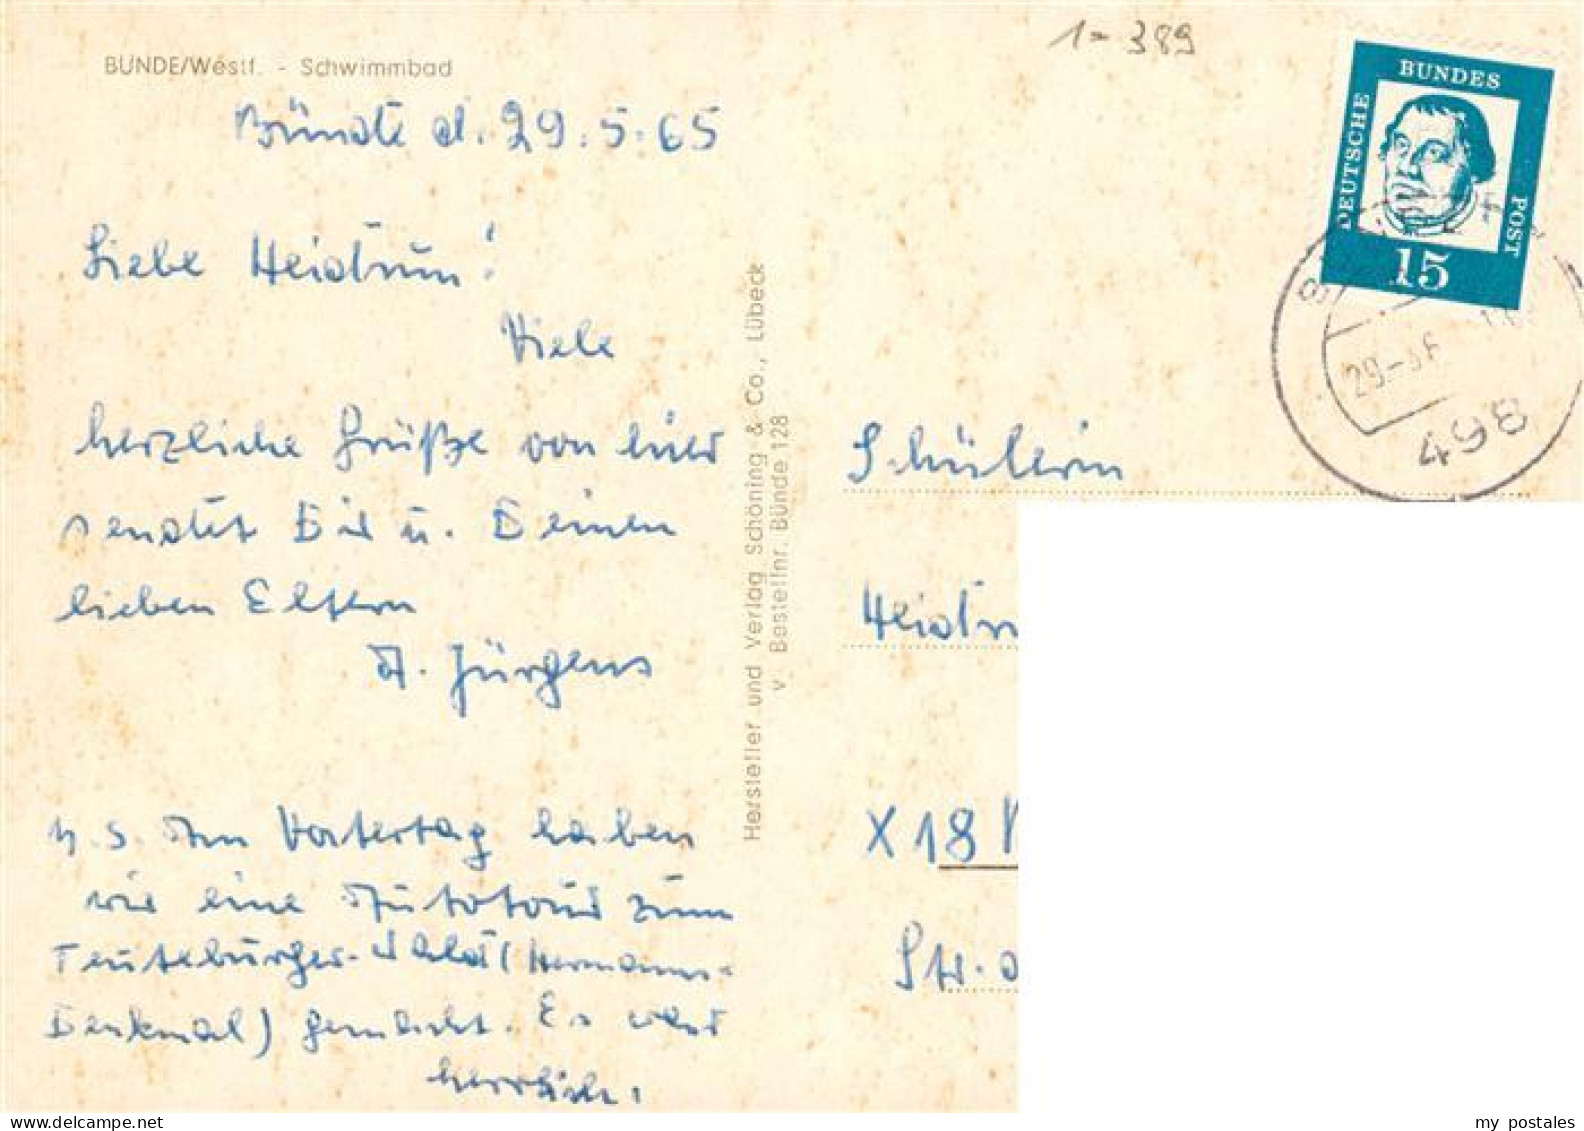 BÜNDE/Westf. - Schwimmbad
1= 389
Bünde d. 29.5.65
Liebe Heidrun!
Viele
herzliche Grüße von hier
sendet Dir u. Deinen
lieben Eltern
A. Jürgens
N.S. Am Vatertag haben
wir eine Autotour zum
Teuteburger-Wald (Hermanns-
Denkmal) gemacht. Es war
herrlich.
Hersteller und Verlag Schöning & Co., Lübeck
v. Bestellnr. Bünde 128
DEUTSCHE
BUNDES
POST
15
29.-5.6
498
Schülerin
X 18
Str. d
my postales